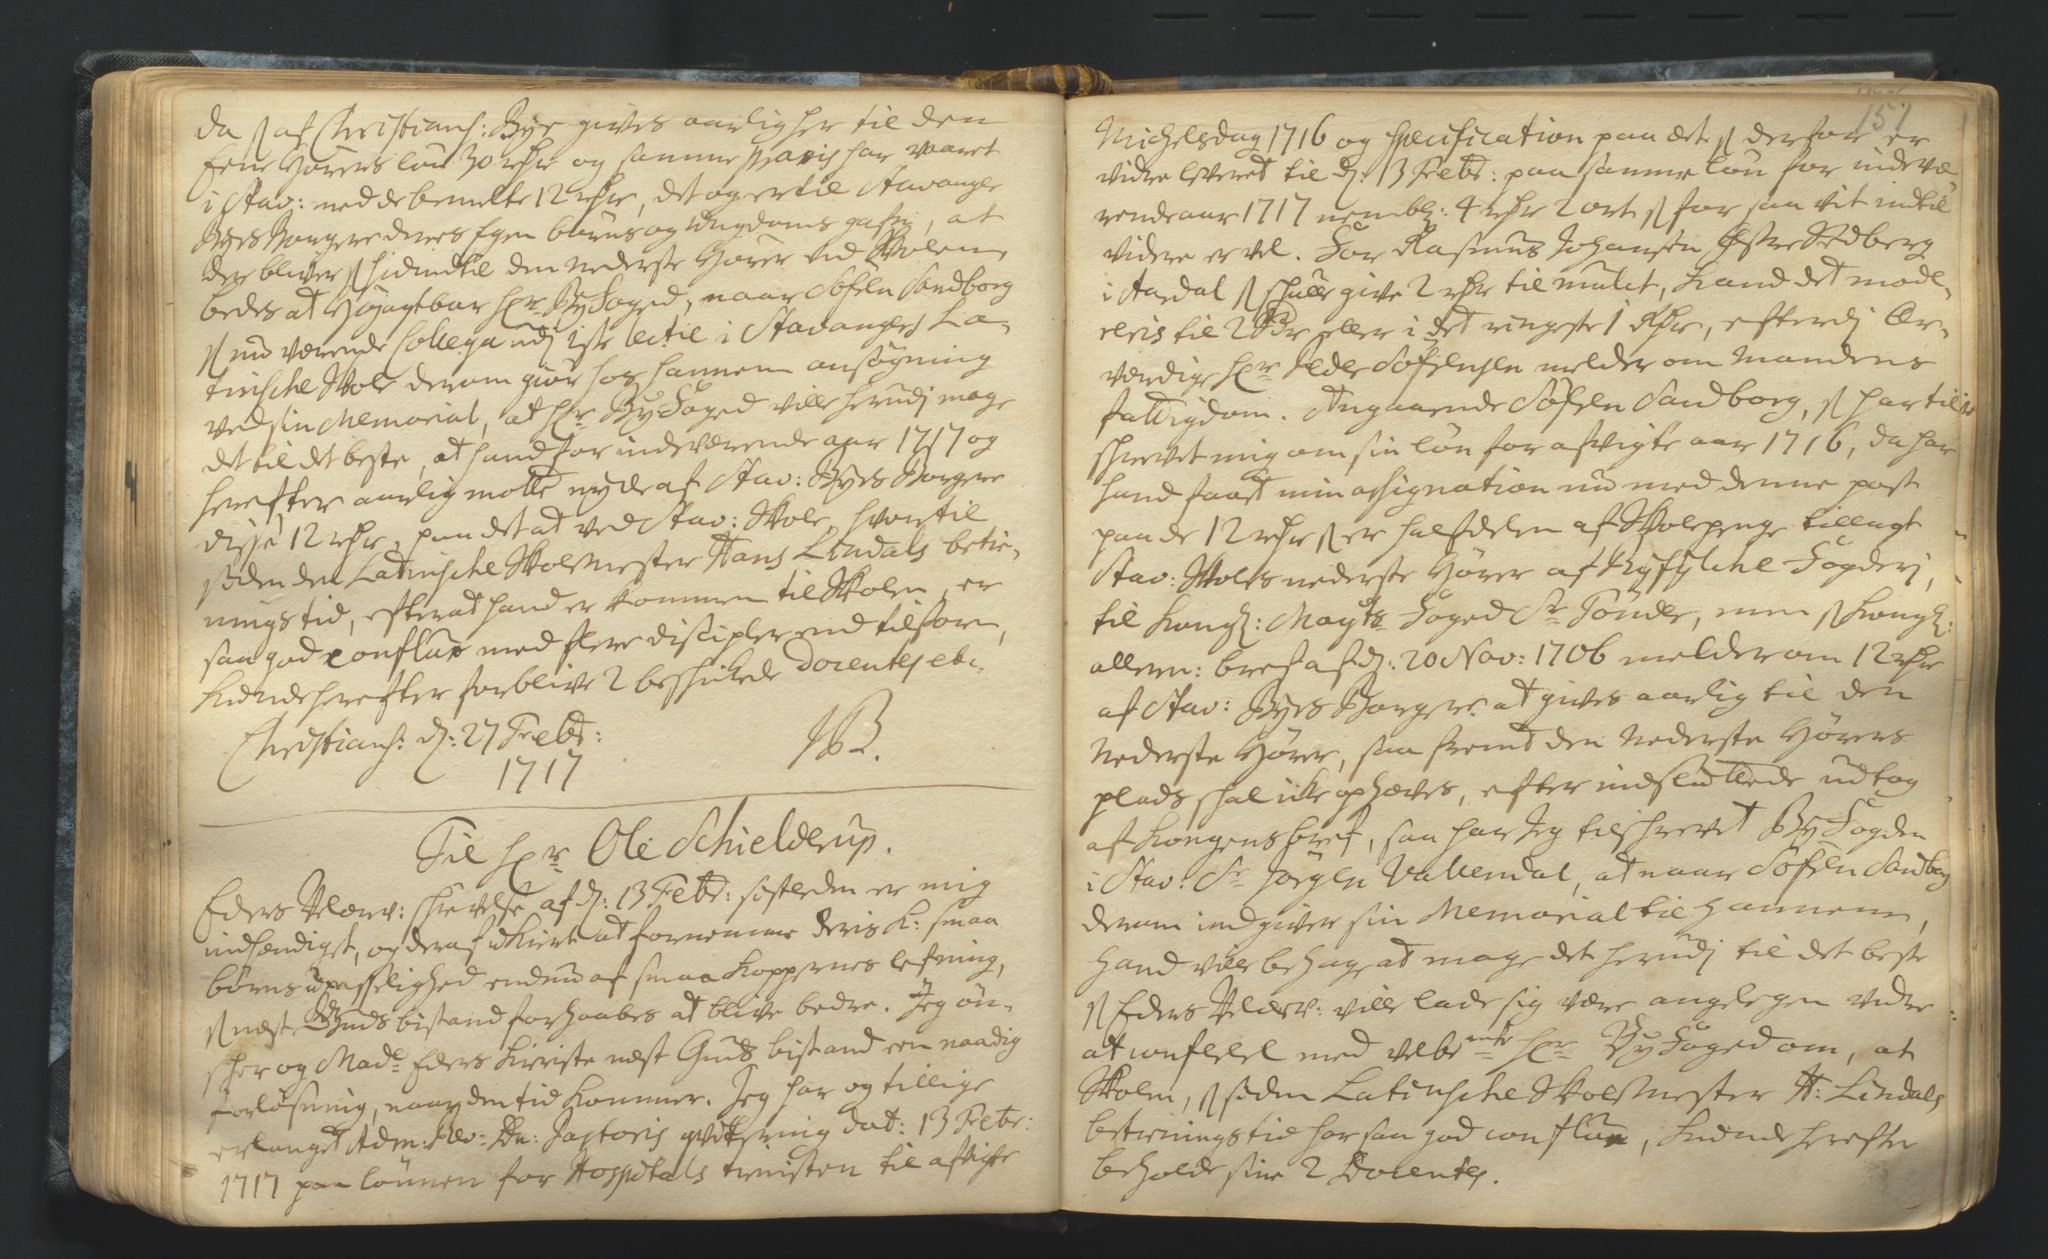 da s: af Christians: Bye gives aarlig her til den
Eene Hørers løn 30 rdr og samme praxis har været
i Stav: med de bemelte 12 rdr, det og er til Stavanger
Byes Borgere deres Egen børns og Ungdoms gafn, at
der bliver s: hid indtil den nederste Hører ved Skolen,
bedes at Høyagtbar hr. ByFoged, naar Søfren Sandborg
s: nu værende Collega udj 1ste lectie i Stavangers La-
tinsche Skole derom giør hos hannem ansøgning
ved sin Memorial, at hr. ByFoged ville herudj mage
det til det beste, at hand for indeværende aar 1717 og
herefter aarlig motte nyde af Stav: Byes Borgere
disse 12 rdr, paa det at ved Stav: Skole, hvortil
siden den Latinsche SkoleMester Hans Lindals betie-
nings tid, efterat hand er kommen til Skolen, er
saa god conflux med flere discipler end tilforn,
kunde herefter forblive 2 beskikede docentes etc.
Christians: d: 27 Febr:
1717
Til hr. Ole Schielderup.
Eders Velærv: skrivelse af d: 13 Febr: sistleden er mig
indhendiget, og deraf ukiert at fornemme deris K: smaa
børns upasselighed endnu af smaa koppernes lefning,
s: næst Guds bistand forhaabes at blive bedre. Jeg øn-
sker og Mad: Eders Kieriste næst Guds bistand een naadig
forløsning, naar den tid kommer. Jeg har og tillige
erlanget Adm: Rev: Dn: Pastoris qvitering dat: 13 Febr:
1717 paa lønnen for Hospitals tienisten til afvigte
157
Michelsdag 1716 og specification paa det s: derfor er
vidre leveret til d: 13 Febr: paa samme løn for indevæ-
rende aar 1717 nembl: 4 rdr 2 ort s: for saa vit indtil
videre er vel. For Rasmus Johansen Østre Sedberg
i Aardal s: skulle give 2 rdr til mulct, kand det mode-
reris til 2 rdr eller i det ringeste 1 Rdr, efterdj Ær-
værdige hr. Peder Søfrensen melder om Mandens
fattigdom. Angaaende Søfren Sandborg, s: har til-
skrevet mig om sin løn for afvigte aar 1716, da har
hand faaet min assignation nu med denne post
paa de 12 rdr s: er halfdelen af Skolepenge tillagt
Stav: Skoles nederste Hører af Ryfylche Fogderj,
til Kongl: Mayts Foged Sr Tonder, men s: Kongl:
allern: bref af d: 20 Nov: 1706 melder om 12 rdr
af Stav: Byes Borgere at gives aarlig til den
Nederste Hører, saafremt den Nederste Hørers
plads skal icke ophæves, efter indsluttede udtog
af Kongens bref, saa har Jeg tilskrevet ByFogden
i Stav: Sr Jørgen Vallendal, at naar Søfren Sandborg
derom indgiver sin Memorial til hannem,
hand ville behage at mage det herudj til det beste
s: Eders Velærv: ville lade sig være angelegen vidre
at conferere med velbemte hr. ByFoged om, at
Skolen, s: siden Latinsche SkoleMester H: Lindals
betienings tid har saa god conflux, kunde herefter
beholde sine 2 Docentes.